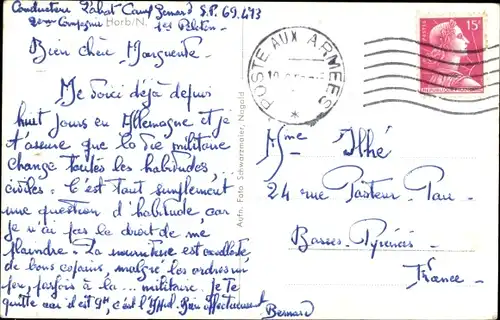 Conducteur Labat Camp Bernard S.P. 69.473
2eme Compagnie Horb/N. 1er Peloton
Bien chère Marguerite.
Me voici déjà depuis
huit jours en Allemagne et je
t'assure que la vie militaire
change toutes les habitudes
civiles. C'est tout simplement
une question d'habitude, car
je n'ai pas le droit de me
plaindre. La nourriture est excellente,
de bons copains, malgré les ordres un
peu, parfois à la ... militaire. Je te
quitte car c'est l'Appel. Bien affectueusement
Bernard
Auto. Foto Schwarzmaier, Nagold
POSTE AUX ARMEES
15F
Mme Ilhé
24 rue Pasteur Pau
Basses-Pyrénées
France